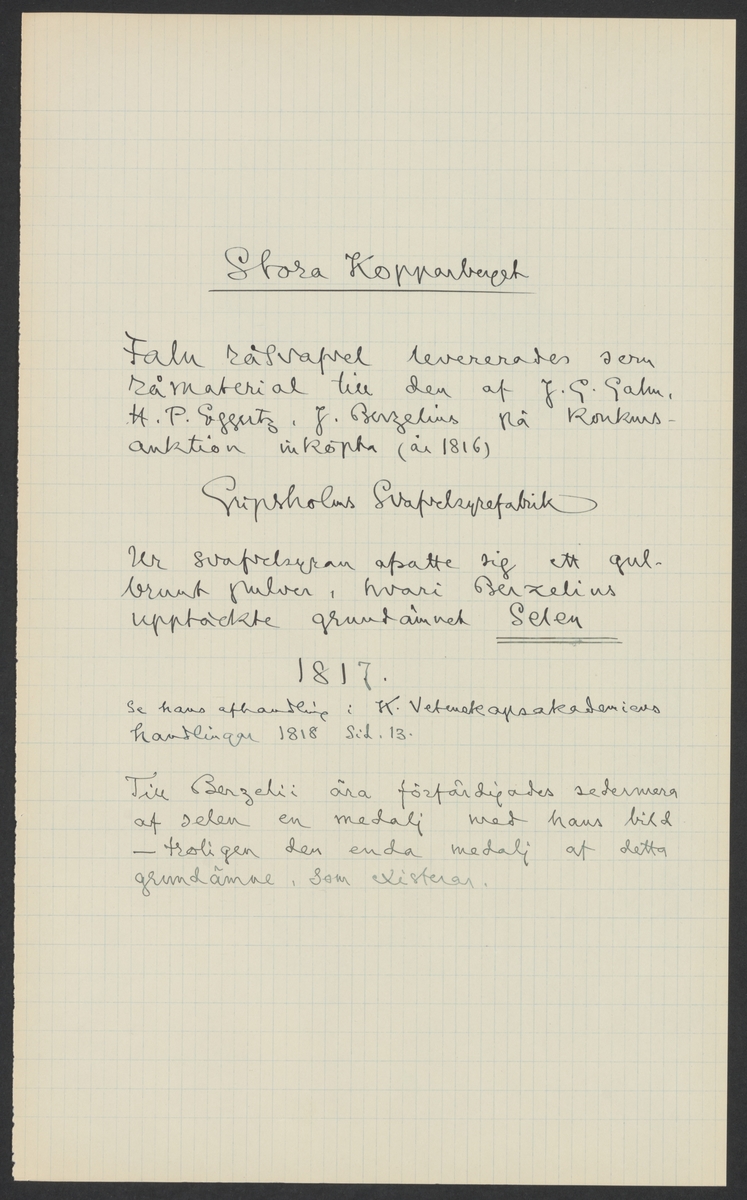 Stora Kopparberget
Falu råsvafvel levererades som
råmaterial till den af J. G. Gahn,
H. P. Eggertz, J. Berzelius på konkurs-
auktion inköpta (år 1816)
Gripsholms Svafvelsyrefabrik
Ur svafvelsyran afsatte sig ett gul-
brunt pulver, hvari Berzelius
upptäckte grundämnet Selen
1817.
Se hans afhandling i K. Vetenskapsakademiens
handlingar 1818 Sid. 13.
Till Berzelii ära förfärdigades sedermera
af selen en medalj med hans bild
— troligen den enda medalj af detta
grundämne, som existerar.